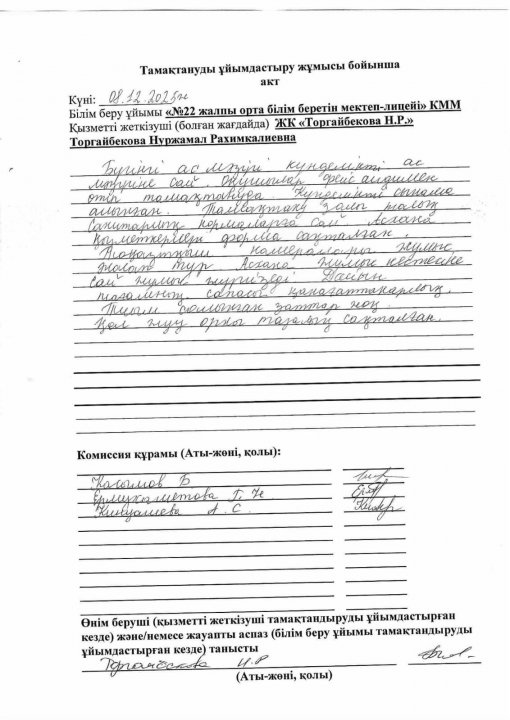 Тамақтануды ұйымдастыру жұмысы бойынша
акт
Күні: 08.12.2025ж
Білім беру ұйымы «№22 жалпы орта білім беретін мектеп-лицейі» КММ
Қызметті жеткізуші (болған жағдайда) ЖК «Торгайбекова Н.Р.»
Торгайбекова Нуржамал Рахимкалиевна
Бүгінгі ас мәзірі күнделікті ас
мәзіріне сай. Оқушылар фейс айдимен
өтіп тамақтануда. Күнделікті сынама
алынған. Тамақтану залы толық
Санитарлық нормаларға сай Асхана
қызметкерлері форма сақталған.
Тоңазытқыш камералары жұмыс
жасап тұр Асхана жұмыс кестеге
сай жұмыс жүргізеді Дайын
тағамның сапасы қанағаттанарлық.
Тиым салынған заттар жоқ.
Қол жуу орны тазалық сақталған.
Комиссия құрамы (Аты-жөні, қолы):
Касымов Б
Г. К
А. С.
Өнім беруші (қызметті жеткізуші тамақтандыруды ұйымдастырған
кезде) және/немесе жауапты аспаз (білім беру ұйымы тамақтандыруды
ұйымдастырған кезде) танысты
Торгайбекова Н.Р
(Аты-жөні, қолы)